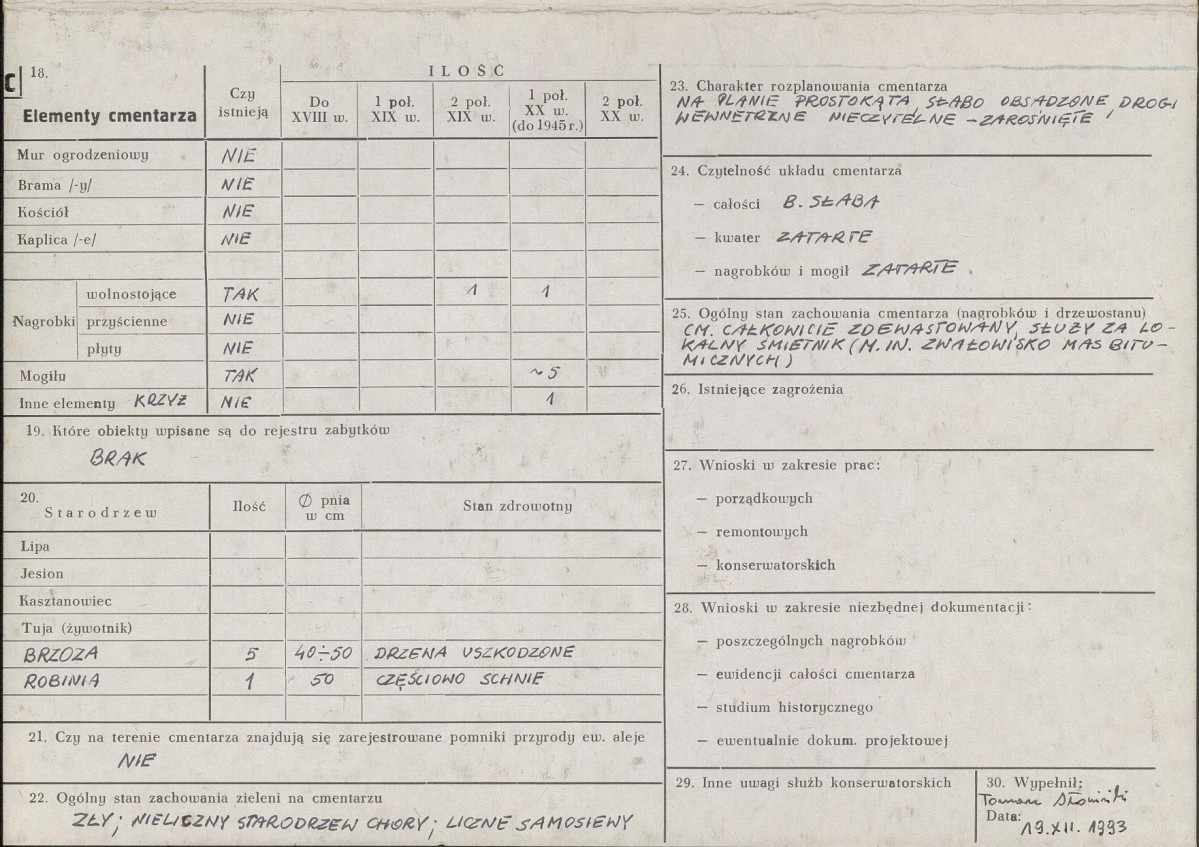 C
18.
Elementy cmentarza
Czy istnieją
ILOŚĆ
Do XVIII w.
1 poł. XIX w.
2 poł. XIX w.
1 poł. XX w. (do 1945 r.)
2 poł. XX w.
Mur ogrodzeniowy NIE
Brama /-y/ NIE
Kościół NIE
Kaplica /-e/ NIE
Nagrobki
wolnostojące TAK 1 1
przyścienne NIE
płyty NIE
Mogiły TAK ~5
Inne elementy KRZYŻ NIE 1
19. Które obiekty wpisane są do rejestru zabytków
BRAK
20. Starodrzew
Ilość
Ø pnia w cm
Stan zdrowotny
Lipa
Jesion
Kasztanowiec
Tuja (żywotnik)
BRZOZA 5 40÷50 DRZEWA USZKODZONE
ROBINIA 1 50 CZĘŚCIOWO SCHNIE
21. Czy na terenie cmentarza znajdują się zarejestrowane pomniki przyrody ew. aleje
NIE
22. Ogólny stan zachowania zieleni na cmentarzu
ZŁY; NIELICZNY STARODRZEW CHORY; LICZNE SAMOSIEWY
23. Charakter rozplanowania cmentarza
NA PLANIE PROSTOKĄTA, SŁABO OBSADZONE, DROGI
WEWNĘTRZNE NIECZYTELNE - ZAROŚNIĘTE
24. Czytelność układu cmentarza
— całości B. SŁABA
— kwater ZATARTE
— nagrobków i mogił ZATARTE
25. Ogólny stan zachowania cmentarza (nagrobków i drzewostanu)
CM. CAŁKOWICIE ZDEWASTOWANY, SŁUŻY ZA LO-
KALNY ŚMIETNIK (M.IN. ZWAŁOWISKO MAS BITU-
MICZNYCH)
26. Istniejące zagrożenia
27. Wnioski w zakresie prac:
— porządkowych
— remontowych
— konserwatorskich
28. Wnioski w zakresie niezbędnej dokumentacji:
— poszczególnych nagrobków
— ewidencji całości cmentarza
— studium historycznego
— ewentualnie dokum. projektowej
29. Inne uwagi służb konserwatorskich
30. Wypełnił:
Data: 19.XII.1993